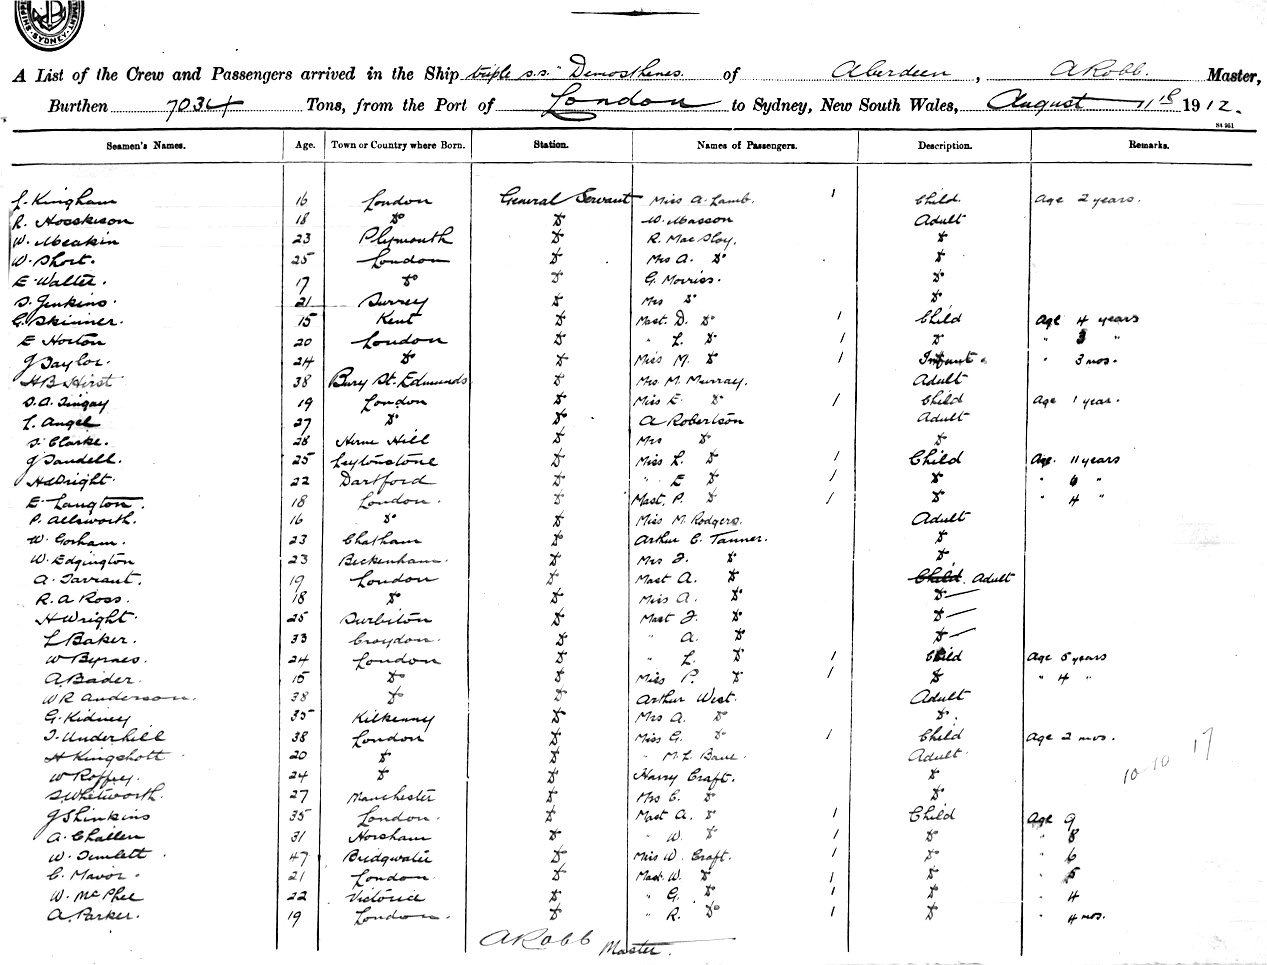 SYDNEY
A List of the Crew and Passengers arrived in the Ship triple s.s. "Demosthenes. of Aberdeen, A Robb. Master,
Burthen 7034 Tons, from the Port of London to Sydney, New South Wales, August 11th 1912.
Seamen's Names. Age. Town or Country where Born. Station. Names of Passengers. Description. Remarks.
Kingham 16 London General Servant Miss A. Lamb. 1 Child. Age 2 years.
R. Hosskison 18 Do Do W. Masson Adult
W. Meakin 23 Plymouth Do R. MacSloy. Do
W. Short. 25 London Do Mrs A. Do Do
E Walter. 17 Do Do G. Morriss. Do
S. Jenkins. 21 Surrey Do Mrs Do Do
G. Skinner. 15 Kent Do Mast. D. Do 1 Child Age 4 years
E Horton 20 London Do " L. Do 1 Do " 3 "
J Taylor. 24 Do Do Miss M. Do 1 Infant. " 3 mos.
H B Hirst 38 Bury St. Edmunds Do Mrs M. Murray. Adult
S. A. Tingay 19 London Do Miss E. Do 1 Child Age 1 year.
L. Angel 27 Do Do A Robertson Adult
S. Clarke. 28 Herne Hill Do Mrs Do Do
J Tandell. 25 Leytonstone Do Miss L. Do 1 Child Age. 11 years
H Wright. 22 Dartford Do " E Do 1 Do " 6 "
E. Langton. 18 London. Do Mast. P. Do 1 Do " 4 "
P. Allsworth. 16 Do Do Miss M. Rodgers. Adult
W. Gorham. 23 Chatham Do Arthur C. Tanner. Do
W. Edgington 23 Beckenham. Do Mrs J. Do Do
A. Tarrant. 19 London Do Mast A. Do Child. Adult
R. A Ross. 18 Do Do Miss A. Do Do
H Wright. 25 Surbiton Do Mast J. Do Do
L Baker. 33 Croydon. Do " A. Do Do
W Byrnes. 24 London Do " L. Do 1 Child Age 5 years
A. Bader. 15 Do Do Miss P. Do 1 Do " 4 "
W R Anderson. 38 Do Do Arthur West. Adult
G. Kidney 35 Kilkenny Do Mrs A. Do Do.
J. Underhill 38 London Do Miss G. Do 1 Child Age 2 mos.
H Kingshott 20 Do Do " M. L. Adult
W Roffey. 24 Do Do Harry Craft. Do 10-10 17
S. Whetworth. 27 Manchester Do Mrs C. Do Do
J Shinkins 35 London. Do Mast A. Do 1 Child Age 9
A. Challen 31 Horsham Do " W. Do 1 Do " 8
W. Tumlett 47 Bridgwater Do Miss W. Craft. 1 Do " 6
C. Mavor. 21 London. Do Mast. W. Do 1 Do " 5
W. McPhee 22 Victoria Do " G. Do 1 Do " 4
A. Parker. 19 London. Do " R. Do 1 Do " 4 mos.
A Robb Master.